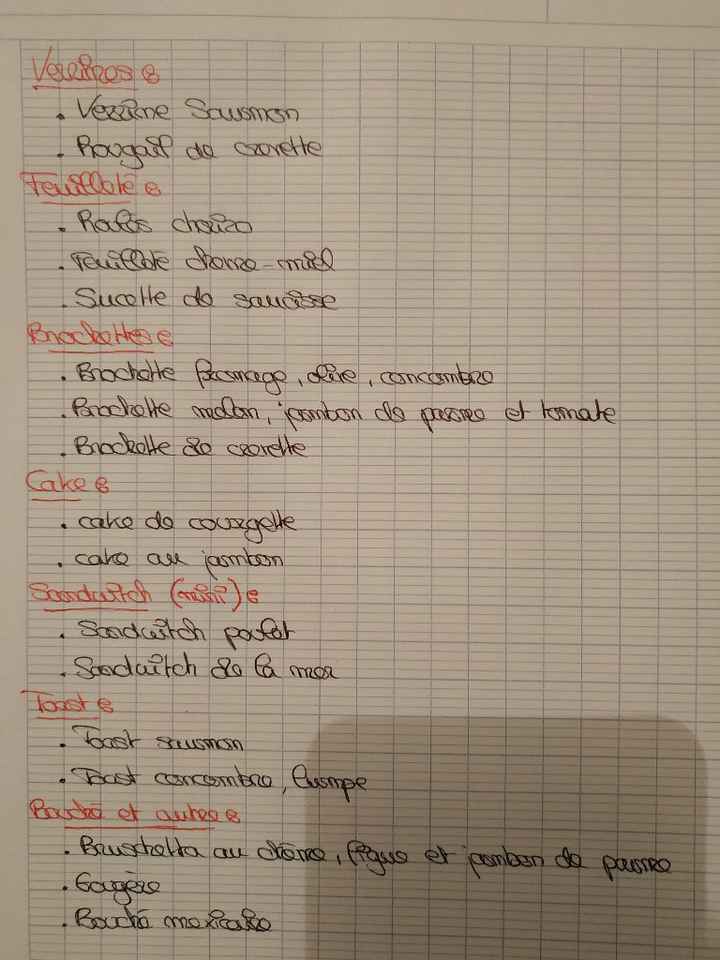 Verrines :
. Verrine Saumon
. Rougail de crevette
Feuilleté :
. Roulés chorizo
. Feuilleté chèvre-miel
. Sucette de saucisse
Brochettes :
. Brochette fromage, olive, concombre
. Brochette melon, jambon de parme et tomate
. Brochette de crevette
Cake :
. cake de courgette
. cake au jambon
Sandwitch (mini) :
. Sandwitch poulet
. Sandwitch de la mer
Toast :
. Toast saumon
. Toast concombre, lumpe
Bouché et autres :
. Bruschetta au chèvre, figue et jambon de parme
. Gougère
. Bouché mexicaine